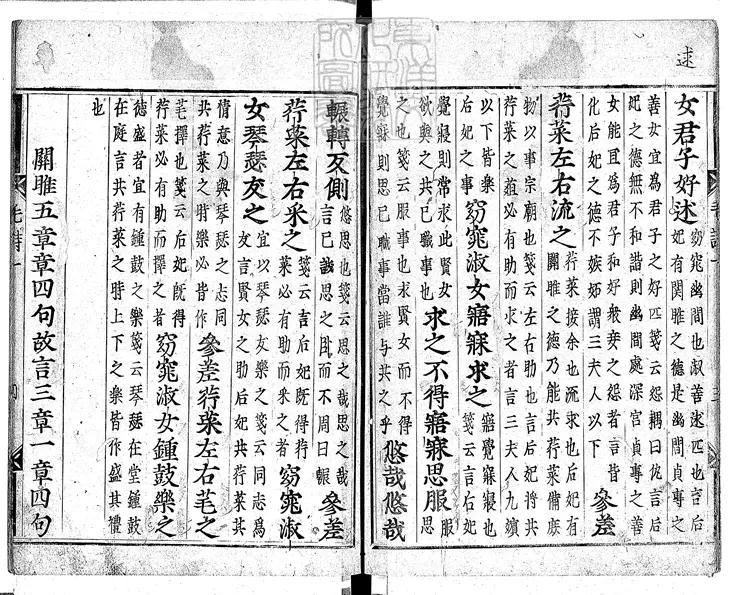 逑
女君子好逑窈窕幽閒也淑善逑匹也言后妃有関雎之德是幽閒貞專之
善女宜爲君子之好匹箋云怨耦曰仇言后妃之德無不和諧則幽閒處深宮貞專之善
女能爲君子和好衆妾之怨者言皆化后妃之德不嫉妬謂三夫人以下參差
荇菜左右流之荇菜接余也流求也后妃有關雎之德乃能共荇菜備庶
物以事宗廟也箋云左右助也言后妃將共荇菜之葅必有助而求之者言三夫人九嬪
以下皆樂后妃之事窈窕淑女寤寐求之寤覺寐寢也箋云言后妃
覺寢則常求此賢女欲與之共已職事也求之不得寤寐思服服思
之也箋云服事也求賢女而不得覺寐則思已職事當誰與共之乎悠哉悠哉
輾轉反側悠思也箋云思之哉思之哉言已誠思之卧而不周曰輾參差
荇菜左右采之箋云言后妃既得荇菜必有助而采之者窈窕淑
女琴瑟友之宜以琴瑟友樂之箋云同志爲友言賢女之助后妃共荇菜其
情意乃與琴瑟之志同共荇菜之時樂必皆作參差荇菜左右芼之
芼擇也箋云后妃既得荇菜必有助而擇之者窈窕淑女鍾鼓樂之
德盛者宜有鍾鼓之樂箋云琴瑟在堂鍾鼓在庭言共荇菜之時上下之樂皆作盛其禮
也
關雎五章章四句故言三章一章四句